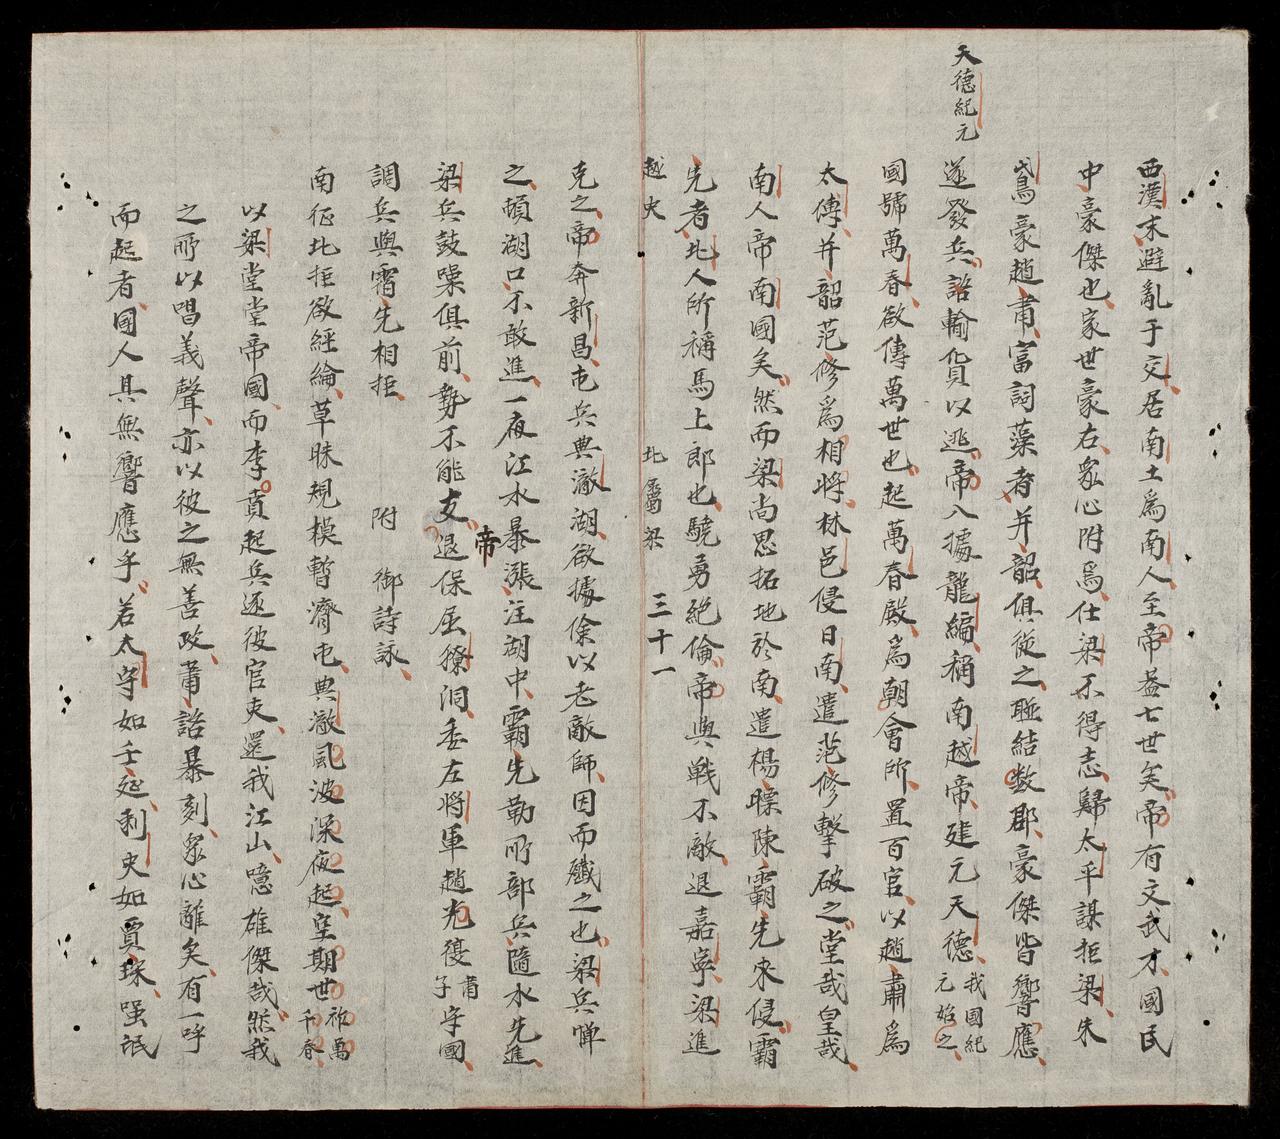 天德紀元
西漢末避亂于交居南土爲南人至帝益七世矣帝有文武才國民
中豪傑也家世豪右衆心附焉仕梁不得志歸太平謀拒梁朱
鳶豪趙肅富詞藻者并韶俱從之聯結数郡豪傑皆響應
遂發兵諮輸貨以逃帝入據龍編稱南越帝建元天德我國紀元始之
國號萬春欲傳萬世也起萬春殿爲朝會所置百官以趙肅爲
太傅并韶范修爲相將林邑侵日南遣范修擊破之堂哉皇哉
南人帝南國矣然而梁尚思拓地於南遣楊瞟陳霸先來侵霸
先者北人所稱馬上郎也驍勇絕倫帝與戰不敵退嘉寧梁進
越史 北屬梁 三十一
克之帝奔新昌屯兵典澈湖欲據險以老敵師因而殲之也梁兵憚
之頓湖口不敢進一夜江水暴漲注湖中霸先勒所部兵隨水先進
梁兵鼓噪俱前勢不能支帝退保屈獠洞委左將軍趙光復肅子守國
調兵與霸先相拒
附 御詩詠
南征北拒欲經綸草昧規模暫濟屯典澈風波深夜起空期世祚萬千春
以梁堂堂帝國而李賁起兵逐彼官吏還我江山噫雄傑哉然我
之所以唱義聲亦以彼之無善政蕭諮暴刻衆心離矣有一呼
而起者國人具無響應乎若太守如壬延刺史如賈琮强氓